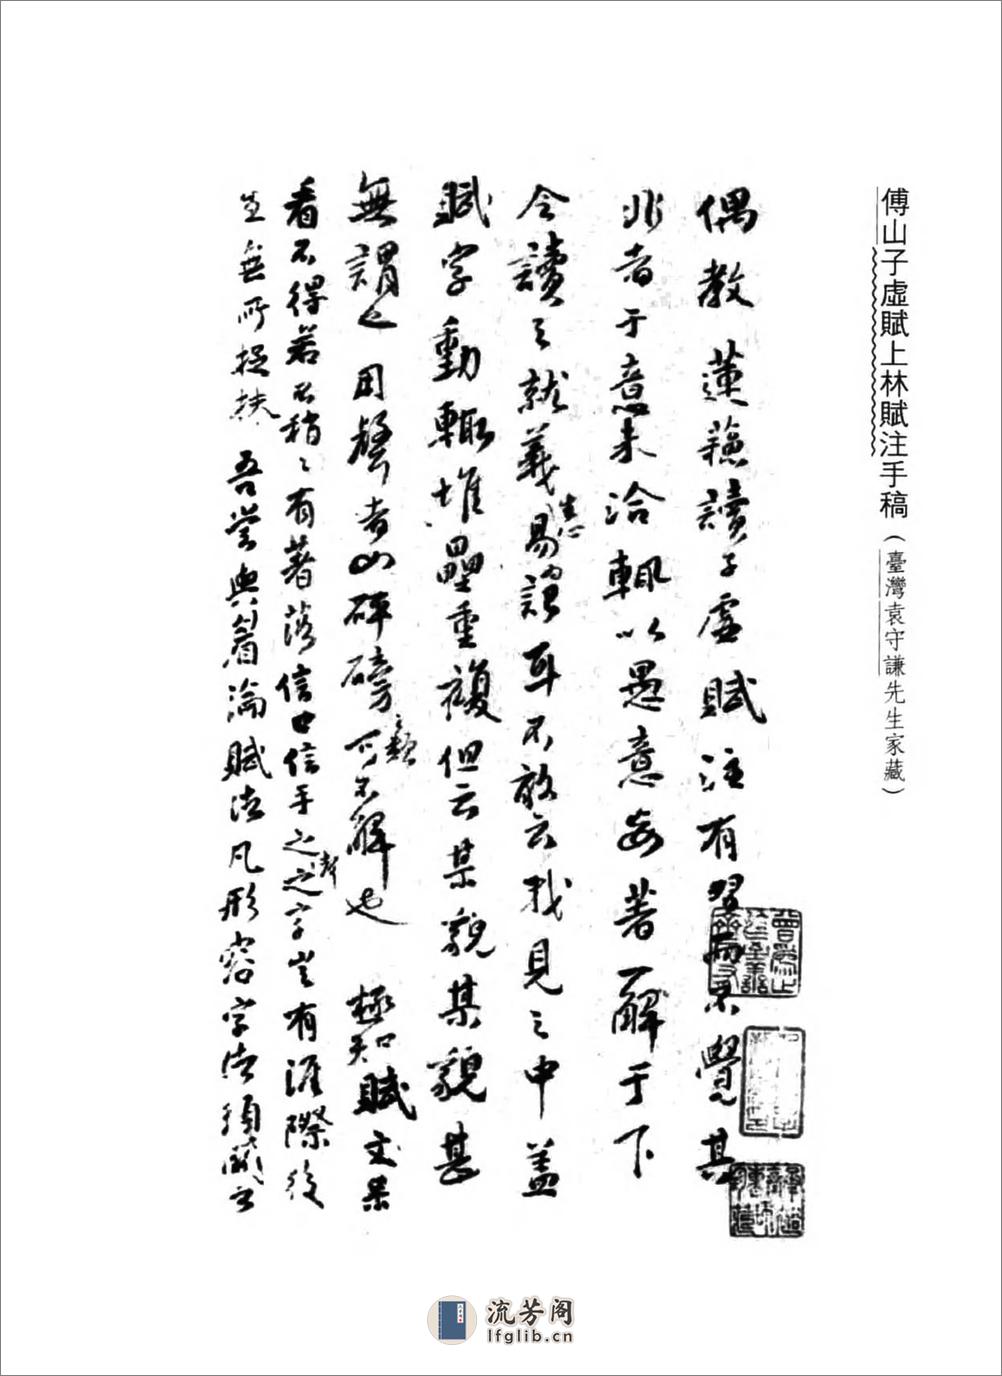 傅山子虛賦上林賦注手稿（臺灣袁守謙先生家藏）
偶教蓮蘓讀子虛賦注有習而不覺其
非者于意未洽輒以愚意妄著一解于下
令讀之就義易憶誦耳不敢云我見之中蓋
賦字動輒堆壘重複但云某貌某貌甚
無謂也用聲者如砰磅之類可不解也 極知賦文呆
看不得若不稍稍有著落信口信手之之者字豈有涯際後
生無所捉扶 吾嘗與眉論賦法凡形容字法須
流芳阁
lfglib.cn